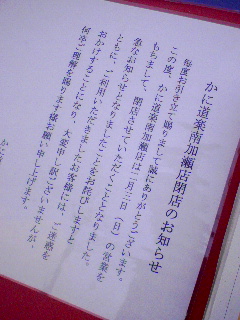 かに道楽南加瀬店閉店のお知らせ
毎度お引き立て賜りまして誠にありがとうございます。
この度、かに道楽南加瀬店は二月三日（日）の営業を
もちまして、閉店させていただくこととなりました。
急なお知らせとなりましたことをお詫びしますと
ともに、ご利用いただきましたお客様には、ご迷惑を
おかけすることになり、大変申し訳ございませんが、
何卒ご理解を賜ります様お願い申し上げます。
かに